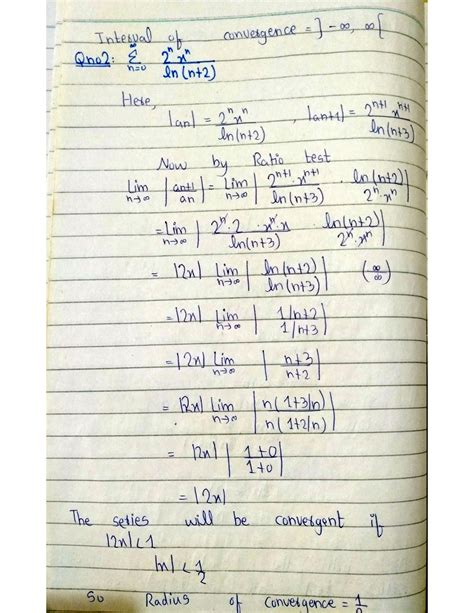 Interval of convergence = ]-∞, ∞[
Qno2: ∞ Σ n=0 2ⁿxⁿ / ln(n+2)
Here,
|an| = 2ⁿxⁿ / ln(n+2) , |an+1| = 2ⁿ⁺¹xⁿ⁺¹ / ln(n+3)
Now by Ratio test
Lim n→∞ |an+1 / an| = Lim n→∞ | 2ⁿ⁺¹.xⁿ⁺¹ / ln(n+3) . ln(n+2) / 2ⁿ.xⁿ |
= Lim n→∞ | 2ⁿ.2 .xⁿ.x / ln(n+3) . ln(n+2) / 2ⁿ.xⁿ |
= |2x| Lim n→∞ | ln(n+2) / ln(n+3) | (∞/∞)
= |2x| Lim n→∞ | 1/n+2 / 1/n+3 |
= |2x| Lim n→∞ | n+3 / n+2 |
= |2x| Lim n→∞ | n(1+3/n) / n(1+2/n) |
= |2x| | 1+0 / 1+0 |
= |2x|
The series will be convergent if
|2x| < 1
|x| < 1/2
So Radius of Convergence = 1/2